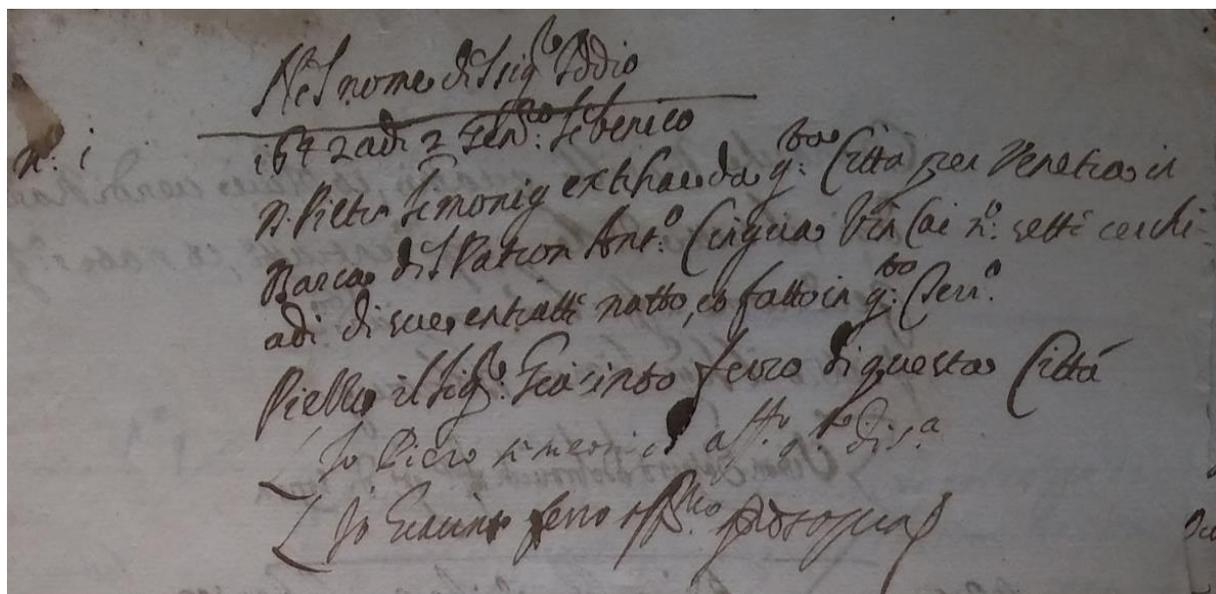 Nel nome del Sig.re Iddio
n: 1
1642 adi 2 Gen.ro Sebenico
P. Pietro Simonig extrhae da q:sta Città per Venetia in
Barca di Patron Ant.o Cingria Vin Cai n.o sette cerchi-
adi di sue entratte natto, et fatto in q:sto Terr.o
Pieggio il Sig.r Giacinto ferro di questa Città
Io Piero simonich aff.o
Io Giacinto ferro